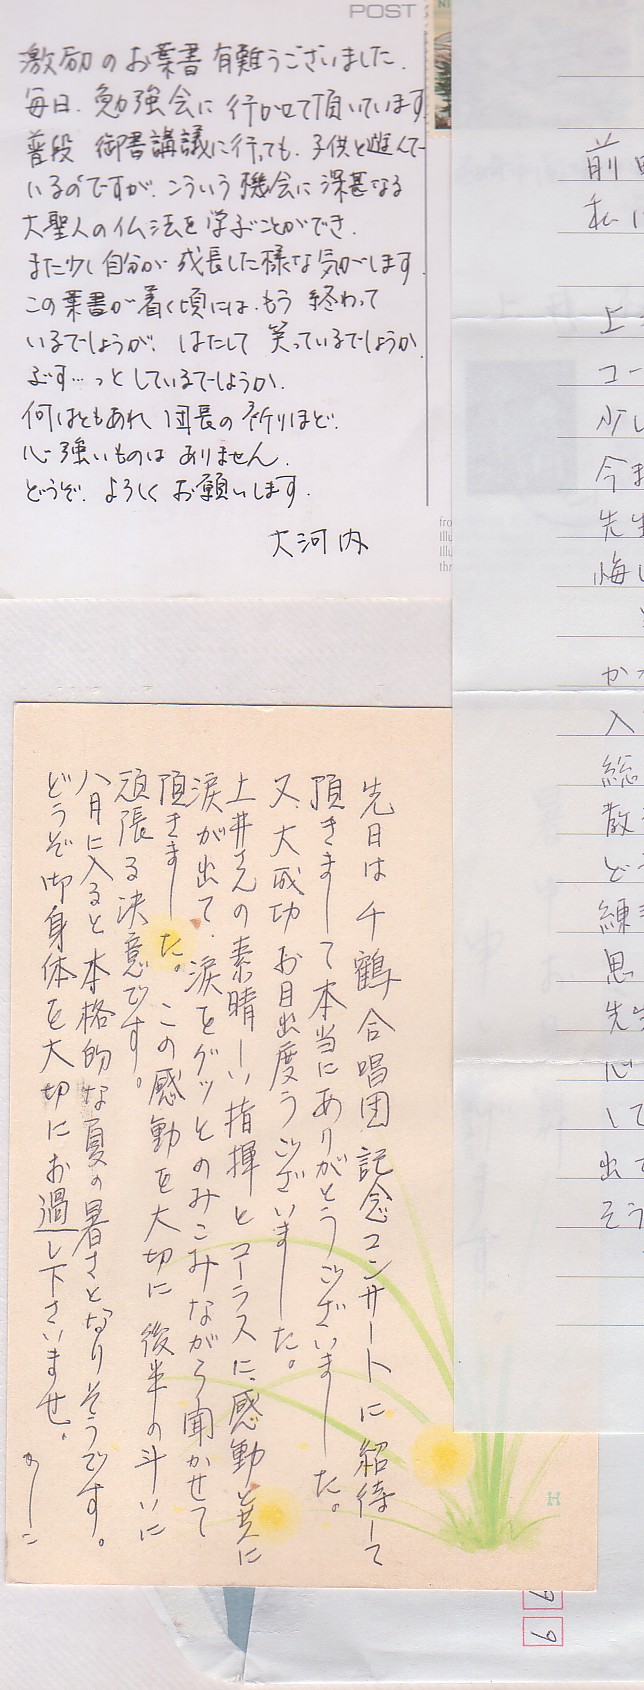 POST
激励のお葉書 有難うございました.
毎日. 勉強会に 行かせて頂いています
普段 御書講議に行っても. 子供と遊んで
いるのですが. こういう 機会に 深甚なる
大聖人の仏法を 学ぶことができ.
また少し 自分が 成長した様な気がします.
この葉書が 着く頃には. もう 終わって
いるでしょうが. はたして 笑っているでしょうか.
ぶす…っと しているでしょうか.
何はともあれ 団長の 祈りほど.
心強いものは ありません.
どうぞ. よろしく お願いします.
大河内
先日は千鶴合唱団記念コンサートに紹待して
頂きまして本当にありがとうございました。
又、大成功お目出度うございました。
土井さんの素晴しい指揮とコーラスに、感動と共に
涙が出て、涙をグッとのみこみながら聞かせて
頂きました。この感動を大切に後半の斗いに
頑張る決意です。
八月に入ると本格的な夏の暑さとなりそうです。
どうぞ御身体を大切にお過し下さいませ。
かしこ
前
私
上
コー
少し
今ま
先生
悔し
か
入
総
散
ど
練
思
先生
心
して
出
そう
9
9